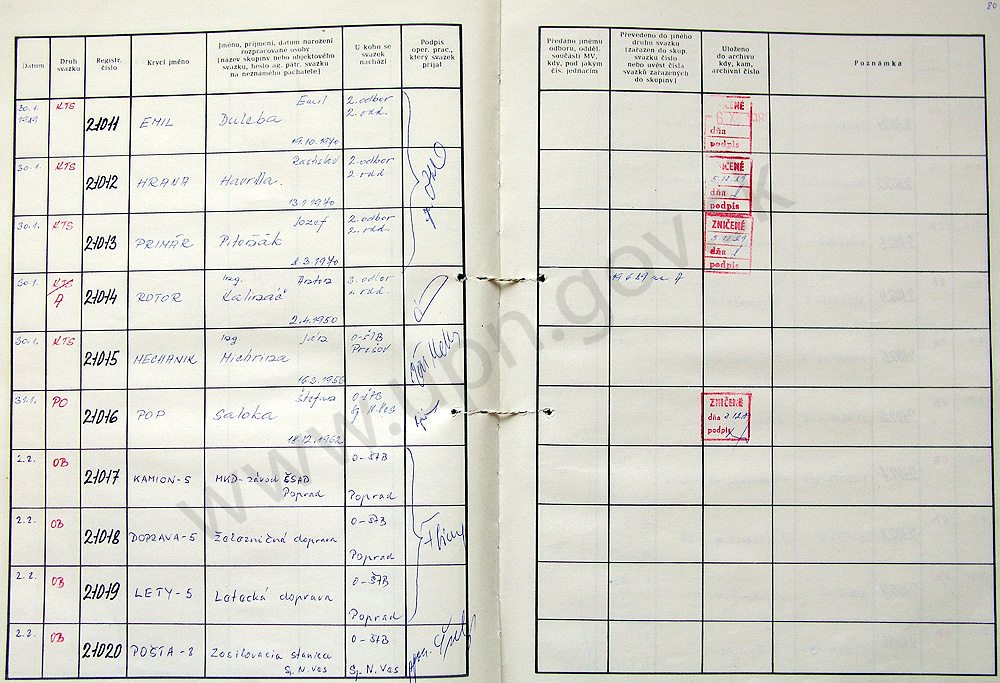 80
Datum
Druh svazku
Registr. číslo
Krycí jméno
Jméno, příjmení, datum narození
rozpracované osoby
(název skupiny nebo objektového
svazku, heslo ag. pátr. svazku
na neznámého pachatele)
U koho se
svazek
nachází
Podpis
oper. prac.,
který svazek
přijal
Předáno jinému
odboru, odděl.
součásti MV,
kdy, pod jakým
čís. jednacím
Převedeno do jiného
druhu svazku
(zařazen do skup.
svazku číslo
nebo uvést čísla
svazků zařazených
do skupiny)
Uloženo
do archivu
kdy, kam,
archivní číslo
Poznámka
30.1. 1989 KTS 21011 EMIL Emil Duleba 19.10.1970 2. odbor 2. odd.
ZNIČENÉ
dňa
podpis
30.1. KTS 21012 HRANA Rastislav 13.1.1970 2. odbor 2. odd
ZNIČENÉ
dňa 5.12.89
podpis
30.1. KTS 21013 PRIMÁR Jozef 8.3.1970 2. odbor 2. odd.
ZNIČENÉ
dňa 5.12.89
podpis
30.1. A 21014 ROTOR Ing. 2.4.1950 odbor odd.
A
30.1. KTS 21015 MECHANIK Ing. Ján 16.3.1956 O-ŠTB Prešov
31.1. PO 21016 POP Štefan Saloka 18.12.1962 O-ŠTB
ZNIČENÉ
dňa
podpis
2.2. OB 21017 KAMION-5 MKD-závod ČSAD Poprad O-ŠTB Poprad
2.2. OB 21018 DOPRAVA-5 Železničná doprava O-ŠTB Poprad
2.2. OB 21019 LETY-5 Letecká doprava O-ŠTB Poprad
2.2. OB 21020 POŠTA-2 Zosilovacia stanica Sp. N. Ves O-ŠTB Sp. N. Ves
www.upn.gov.sk